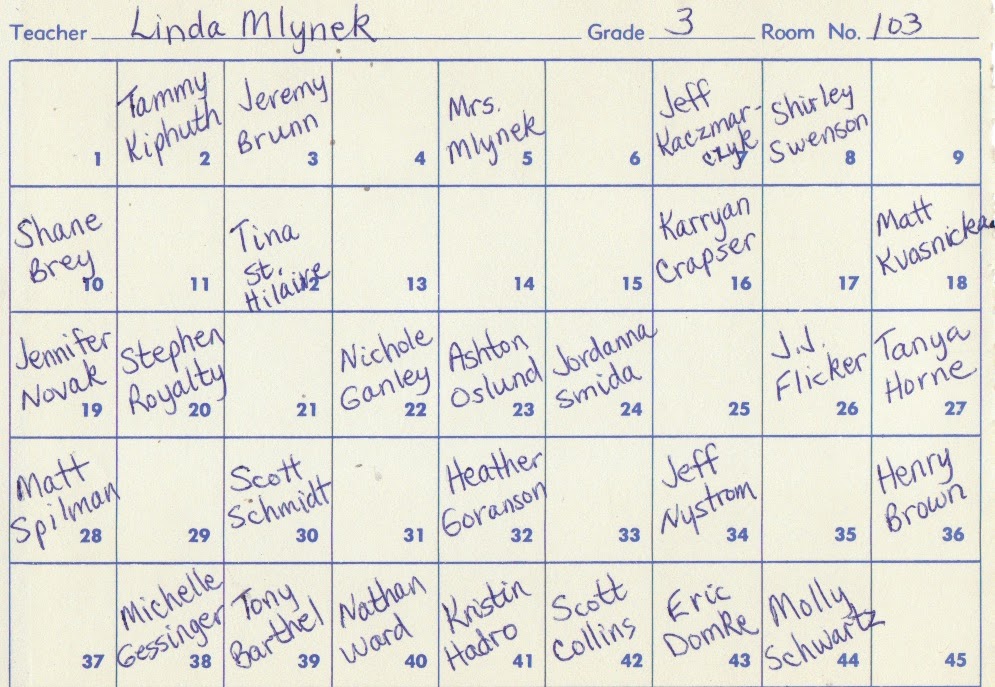 Teacher Linda Mlynek Grade 3 Room No. 103
1
Tammy
Kiphuth
2
Jeremy
Brunn
3
4
Mrs.
Mlynek
5
6
Jeff
Kaczmar-
czyk
7
Shirley
Swenson
8
9
Shane
Brey
10
11
Tina
St.
Hilaire
12
13
14
15
Karryan
Crapser
16
17
Matt
Kvasnicka
18
Jennifer
Novak
19
Stephen
Royalty
20
21
Nichole
Ganley
22
Ashton
Oslund
23
Jordanna
Smida
24
25
J.J.
Flicker
26
Tanya
Horne
27
Matt
Spilman
28
29
Scott
Schmidt
30
31
Heather
Goranson
32
33
Jeff
Nystrom
34
35
Henry
Brown
36
37
Michelle
Gessinger
38
Tony
Barthel
39
Nathan
Ward
40
Kristin
Hadro
41
Scott
Collins
42
Eric
Domke
43
Molly
Schwartz
44
45